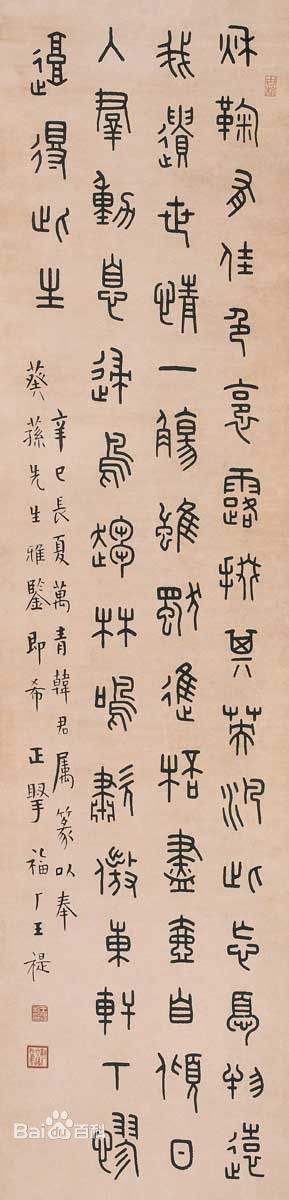 秋鞠有佳色裛露掇其英汎此忘憂物遠
我遺世情一觴雖獨進桮盡壺自傾日
入羣動息歸鳥趨林鳴歗傲東軒下憀
復得此生
辛巳長夏萬青韓君屬篆以奉
葵蓀先生雅鑒即希正福厂王禔
Bai百科